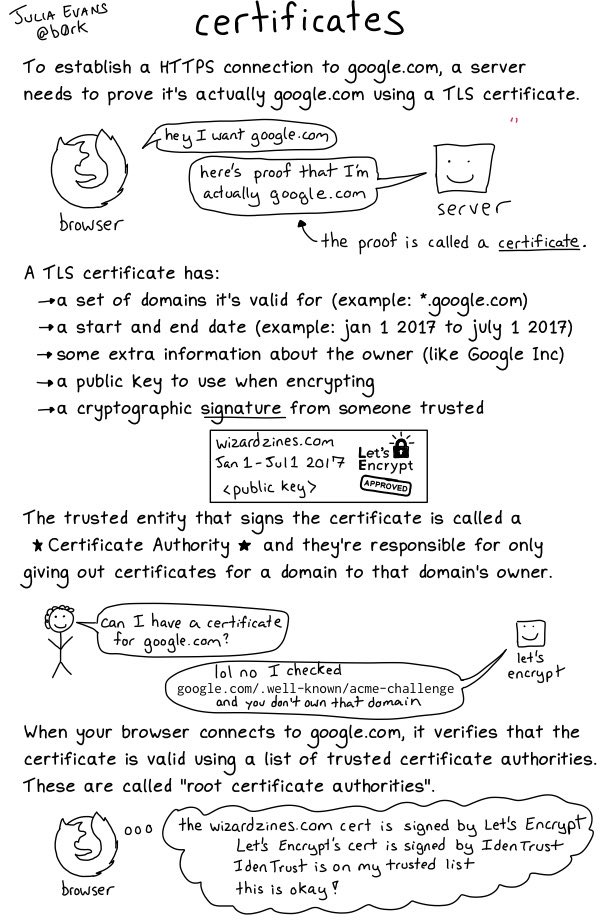 JULIA EVANS
@b0rk
certificates
To establish a HTTPS connection to google.com, a server
needs to prove it's actually google.com using a TLS certificate.
hey I want google.com
here's proof that I'm
actually google.com
browser
server
the proof is called a certificate.
A TLS certificate has:
→a set of domains it's valid for (example: *.google.com)
→a start and end date (example: jan 1 2017 to july 1 2017)
→some extra information about the owner (like Google Inc)
→a public key to use when encrypting
→a cryptographic signature from someone trusted
wizardzines.com
Jan 1-Jul1 2017
<public key>
Let's
Encrypt
APPROVED
The trusted entity that signs the certificate is called a
★Certificate Authority★ and they're responsible for only
giving out certificates for a domain to that domain's owner.
can I have a certificate
for google.com?
lol no I checked
google.com/.well-known/acme-challenge
and you don't own that domain
let's
encrypt
When your browser connects to google.com, it verifies that the
certificate is valid using a list of trusted certificate authorities.
These are called "root certificate authorities".
browser
the wizardzines.com cert is signed by Let's Encrypt
Let's Encrypt's cert is signed by IdenTrust
IdenTrust is on my trusted list
this is okay!